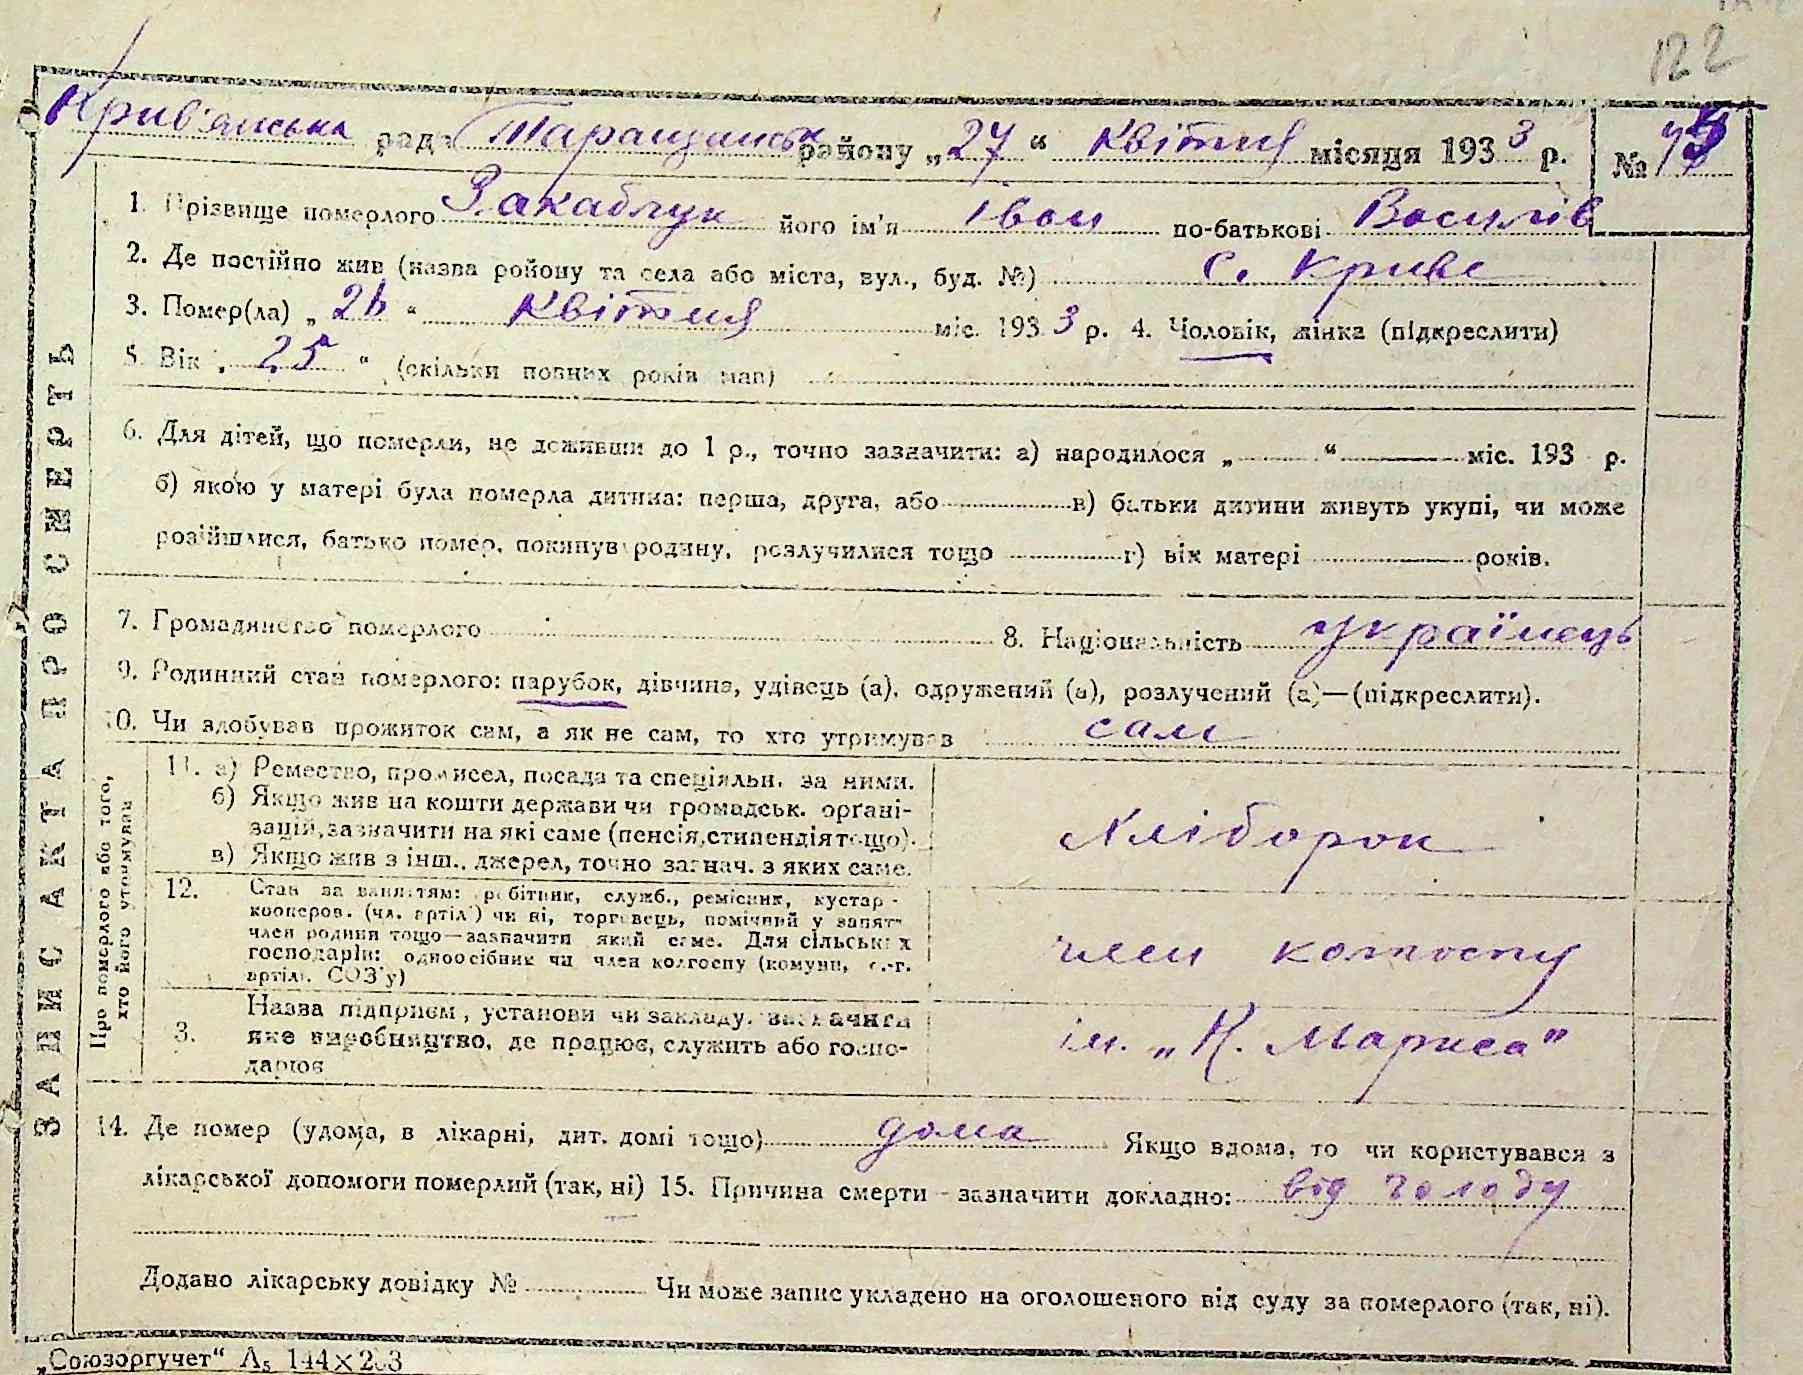 122
Крив'янська рада Таращанськ району „27“ Квітня місяця 1933 р. №
1. Прізвище померлого Закаблук його ім'я Іван по-батькові Василів
2. Де постійно жив (назва району та села або міста, вул., буд. №) с. Криве
3. Помер(ла) „26“ Квітня міс. 1933 р. 4. Чоловік, жінка (підкреслити)
5. Вік „25“ (скільки повних років мав)
6. Для дітей, що померли, не доживши до 1 р., точно зазначити: а) народилося „ “ міс. 193 р.
б) якою у матері була померла дитина: перша, друга, або в) батьки дитини живуть укупі, чи може
розійшлися, батько помер, покинув родину, розлучилися тощо г) вік матері років.
7. Громадянство померлого 8. Національність українець
9. Родинний стан померлого: парубок, дівчина, удівець (а), одружений (а), розлучений (а)—(підкреслити).
10. Чи здобував прожиток сам, а як не сам, то хто утримував сам
ЗАПИС АКТА ПРО СМЕРТЬ
Про померлого або того,
хто його утримував
11. а) Ремество, промисел, посада та спеціяльн. за ними.
б) Якщо жив на кошти держави чи громадськ. організацій, зазначити на які саме (пенсія, стипендія тощо).
в) Якщо жив з інш. джерел, точно зазнач. з яких саме.
Хлібороб
12. Стан за заняттям: робітник, служб., ремісник, кустар-
кооперов. (чл. артіл.) чи ні, торговець, помічний у занят.
член родини тощо—зазначити який саме. Для сільських
господарів: одноосібник чи член колгоспу (комуни, с.-г.
артілі, СОЗ'у)
член колгоспу
3. Назва підприєм., установи чи закладу, зазначити
яке виробництво, де працює, служить або госпо-
дарює
ім. „К. Маркса”
14. Де помер (удома, в лікарні, дит. домі тощо) дома Якщо вдома, то чи користувався з
лікарської допомоги померлий (так, ні) 15. Причина смерти - зазначити докладно: від голоду
Додано лікарську довідку № Чи може запис укладено на оголошеного від суду за померлого (так, ні).
„Союзоргучет“ А₅ 144×203